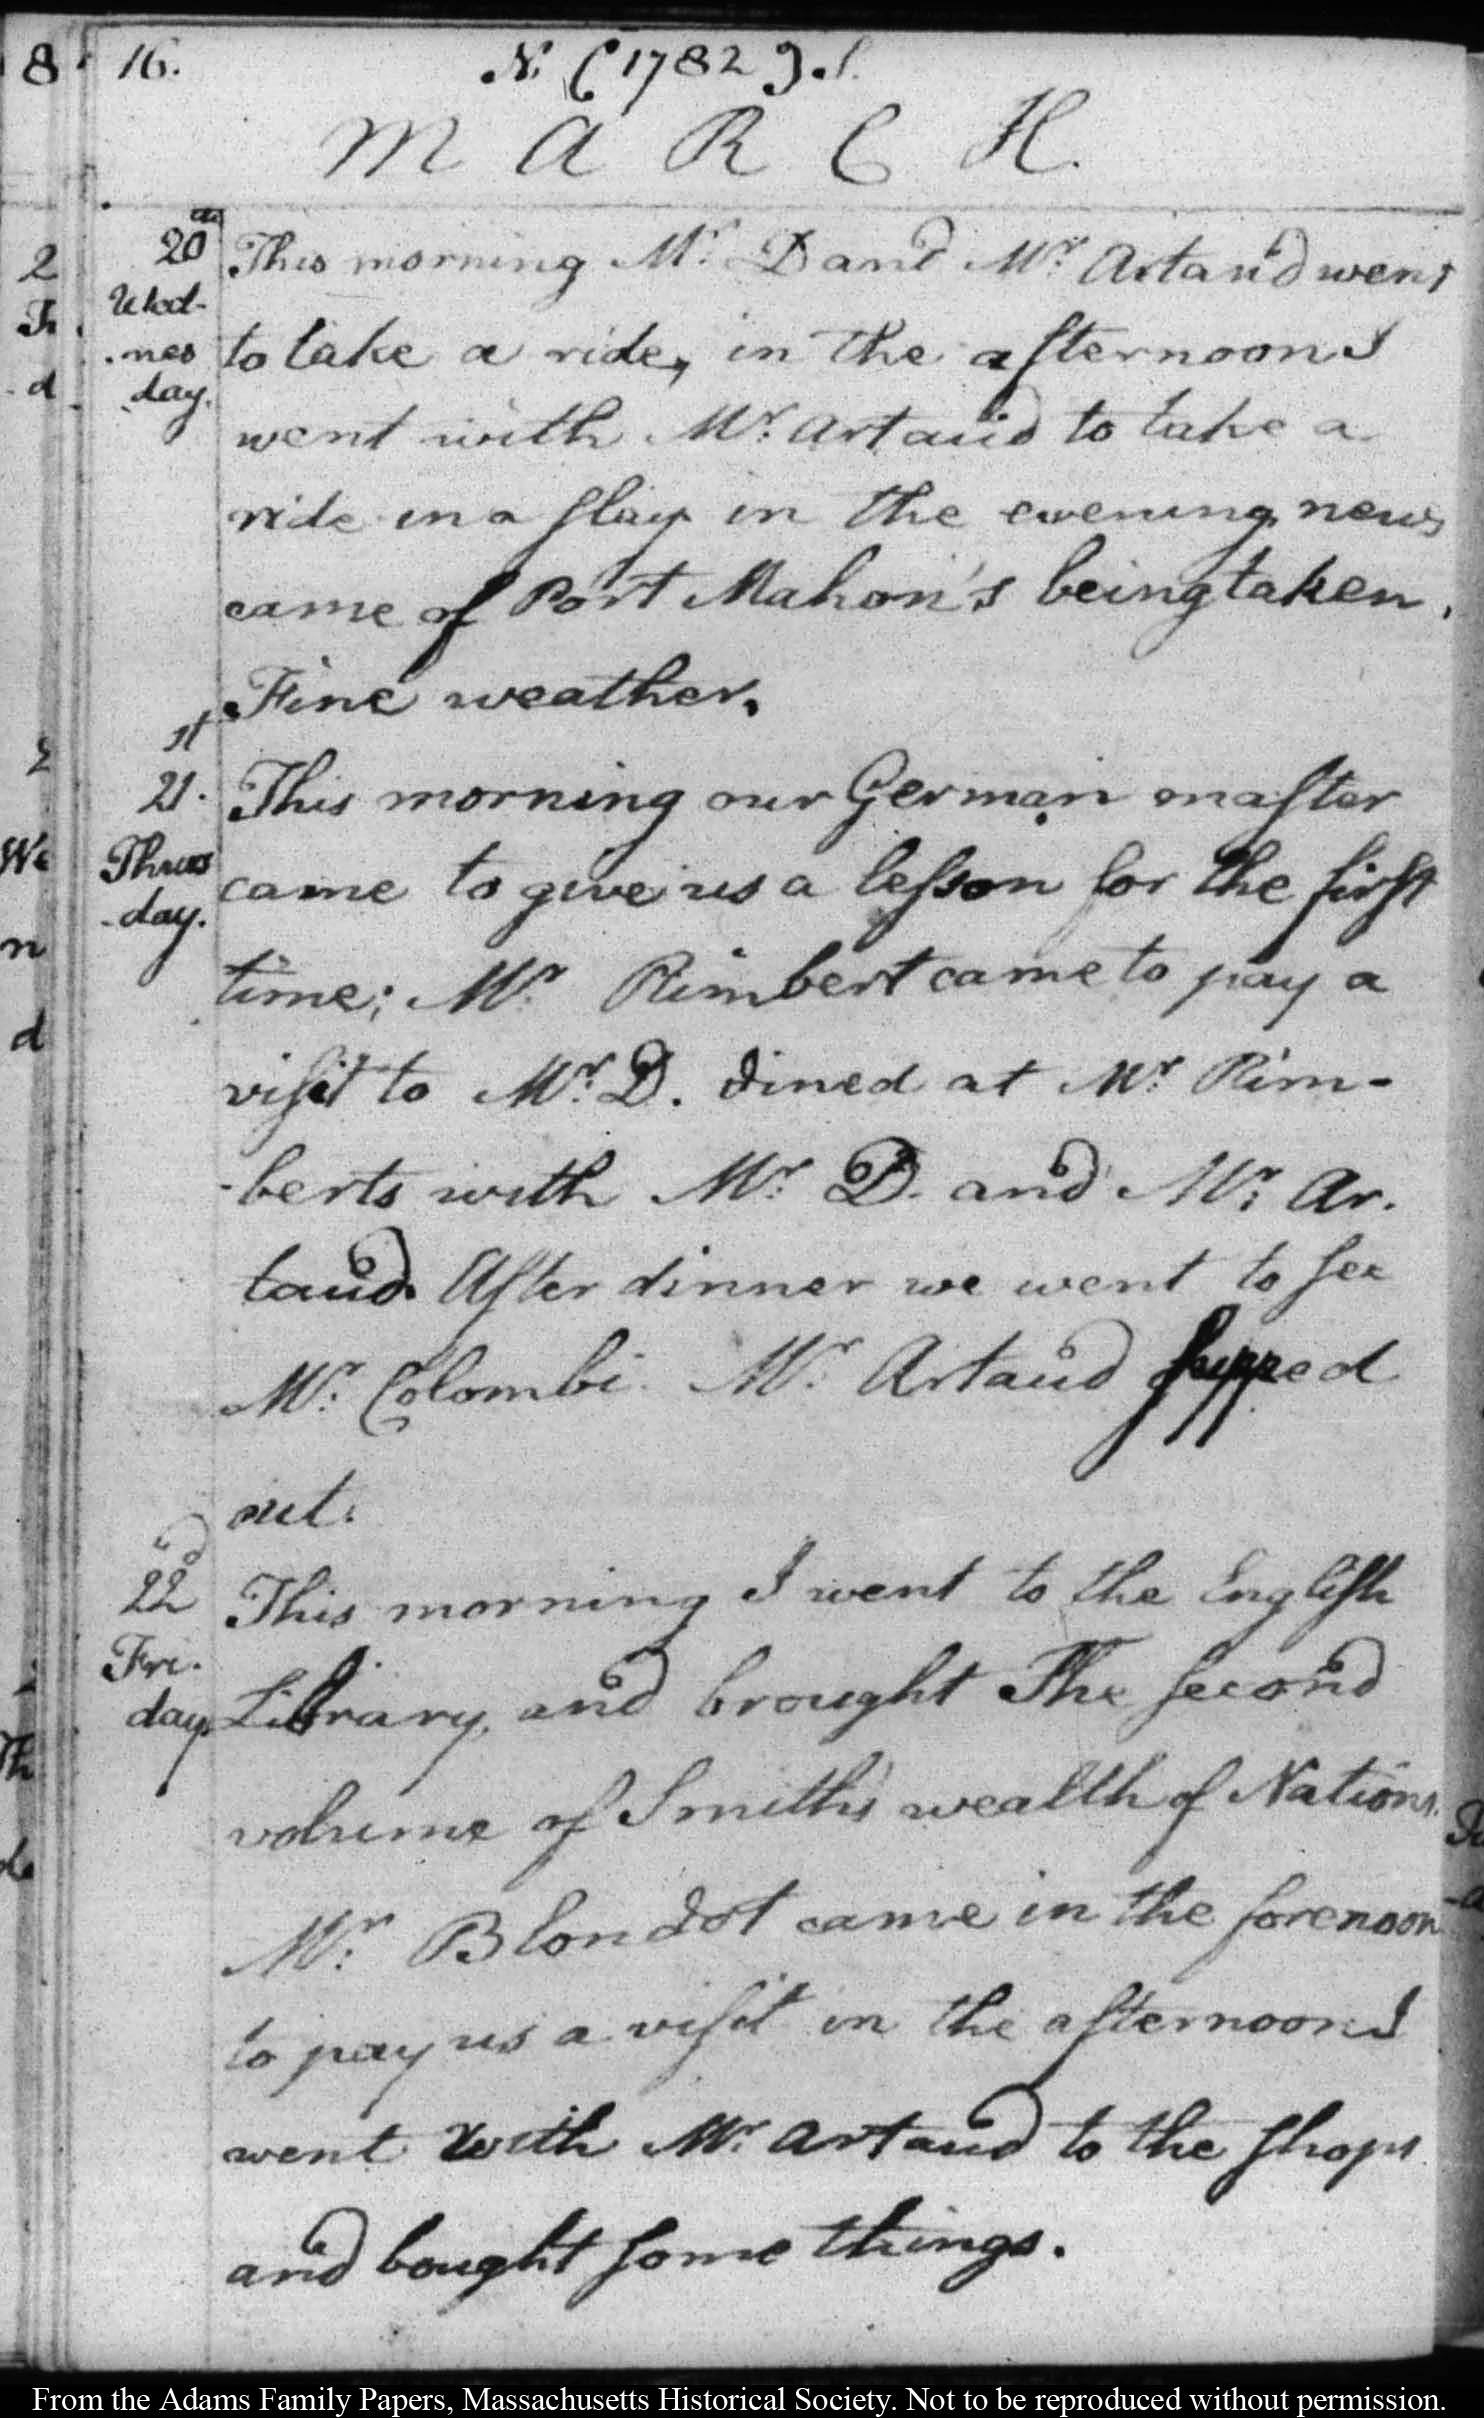 16. N. (1782). S.
M A R C H.
20th Wednesday.
This morning Mr. D and Mr. Artaud went
to take a ride, in the afternoon I
went with Mr. Artaud to take a
ride in a slay in the evening news
came of Port Mahon's being taken.
Fine weather.
21st Thursday.
This morning our German master
came to give us a lesson for the first
time; Mr. Rimbert came to pay a
visit to Mr. D. dined at Mr. Rim-
-berts with Mr. D. and Mr. Ar.
taud. After dinner we went to see
Mr. Colombi. Mr. Artaud supped
out.
22d Friday
This morning I went to the English
Library, and brought The second
volume of Smith's wealth of Nations.
Mr. Blondot came in the forenoon
to pay us a visit in the afternoon I
went with Mr. Artaud to the shops
and bought some things.
From the Adams Family Papers, Massachusetts Historical Society. Not to be reproduced without permission.